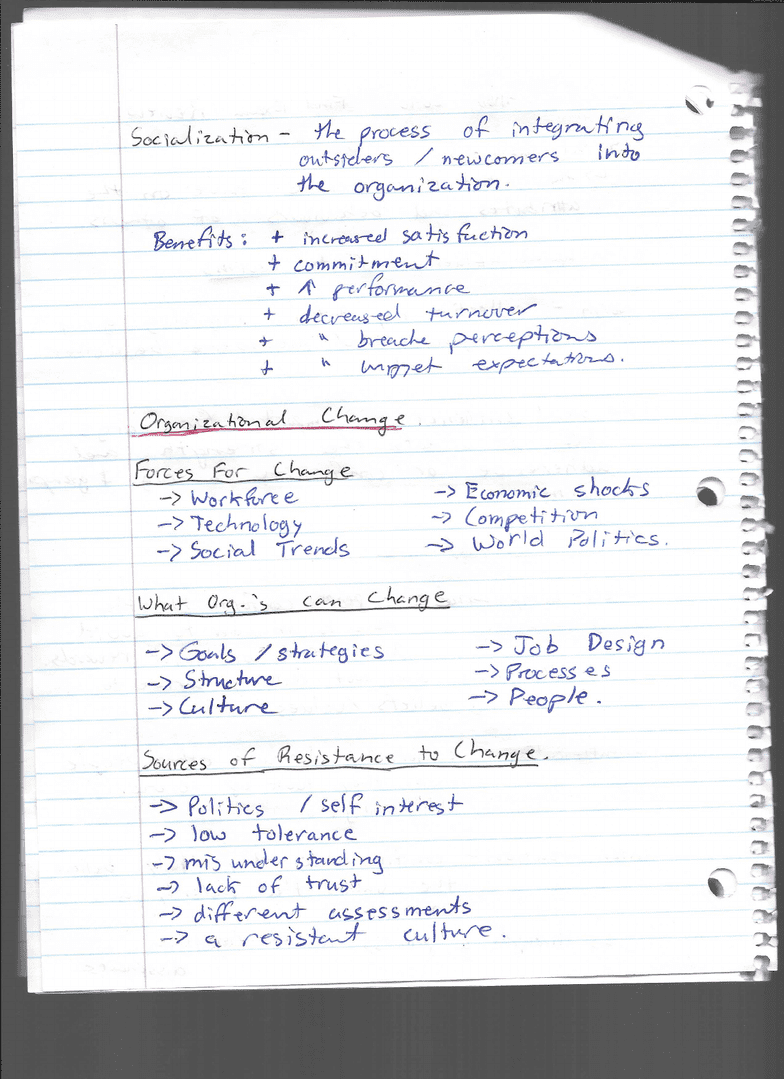 Socialization – the process of integrating
outsiders / newcomers into
the organization.
Benefits: + increased satisfaction
+ commitment
+ ↑ performance
+ decreased turnover
+ " breache perceptions
+ " unmet expectations.
Organizational Change.
Forces For Change
-> Workforce -> Economic shocks
-> Technology -> Competition
-> Social Trends -> World Politics.
What Org.'s can Change
-> Goals / strategies -> Job Design
-> Structure -> Processes
-> Culture -> People.
Sources of Resistance to Change.
-> Politics / self interest
-> low tolerance
-> misunderstanding
-> lack of trust
-> different assessments
-> a resistant culture.